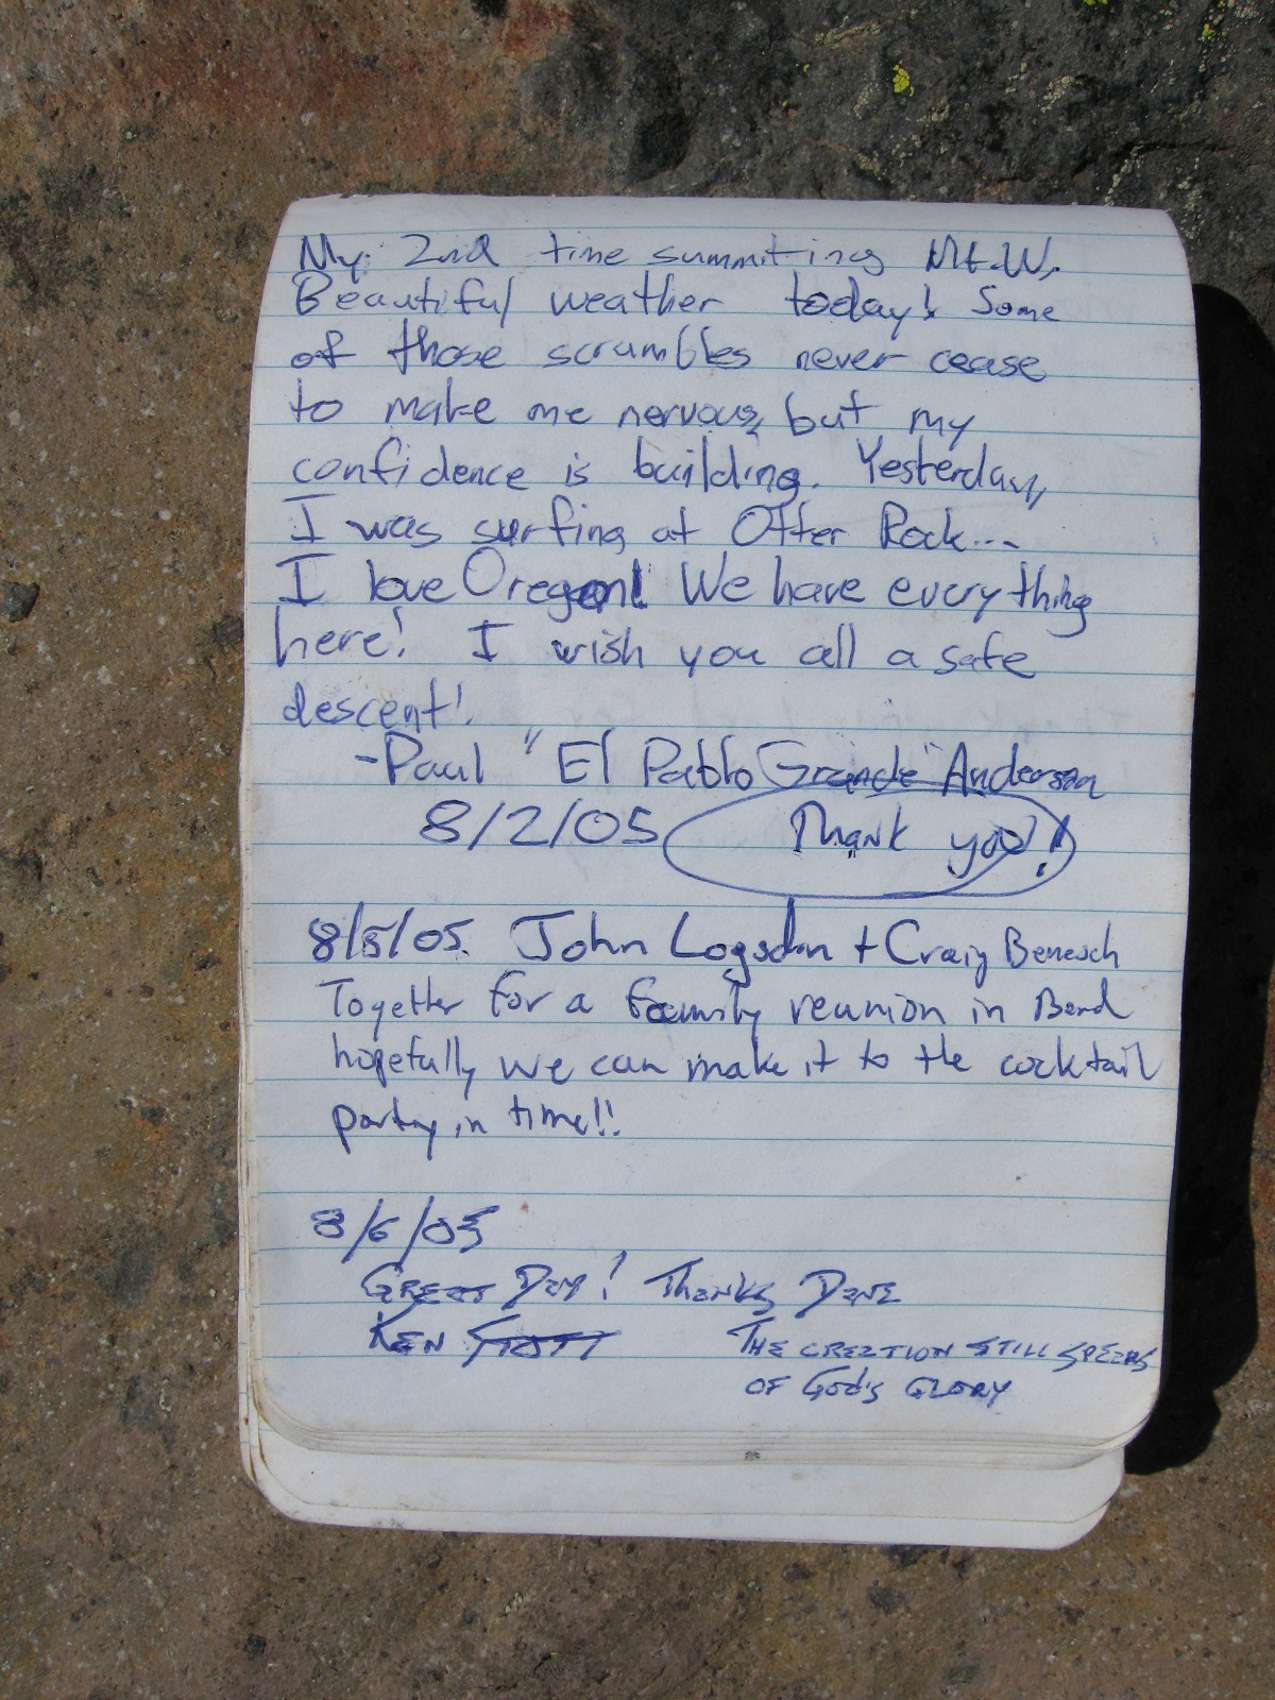 My 2nd time summiting Mt. W.
Beautiful weather today! Some
of those scrambles never cease
to make me nervous, but my
confidence is building. Yesterday,
I was surfing at Otter Rock...
I love Oregon! We have everything
here! I wish you all a safe
descent!
-Paul "El Pablo Grande" Anderson
8/2/05 Thank you!
8/5/05 John Logsdon + Craig Benesch
Together for a family reunion in Bend
hopefully we can make it to the cocktail
party in time!!
8/6/05
GREAT DAY! THANKS DAVE
KEN THE CREATION STILL SPEAKS
OF GOD'S GLORY